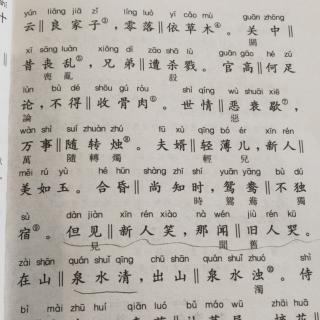 yún liáng jiā zǐ líng luò yī cǎo mù guān zhōng
云‖良家子③,零落‖依草木④。关中‖
關
xī sāng luàn xiōng dì zāo shā lù guān gāo hé zú
昔丧乱⑤,兄弟‖遭杀戮。官高‖何足
喪亂 殺
lùn bù dé shōu gǔ ròu shì qíng wù shuāi xiē
论,不得‖收骨肉⑥。世情‖恶衰歇⑦,
論 惡
wàn shì suí zhuǎn zhú fū xù qīng bó ér xīn rén
万事‖随转烛⑧。夫婿‖轻薄儿,新人‖
萬 隨轉燭 輕 兒
měi rú yù hé hūn shàng zhī shí yuān yāng bù dú
美如玉。合昏‖尚知时,鸳鸯‖不独
時 鴛鴦 獨
sù dàn jiàn xīn rén xiào nà wén jiù rén kū
宿⑨。但见‖新人笑,那闻‖旧人哭。
見 聞 舊
zài shān quán shuǐ qīng chū shān quán shuǐ zhuó shì
在山‖泉水清,出山‖泉水浊⑩。侍
濁
bì mài zhū huí qiān luó bǔ máo wū